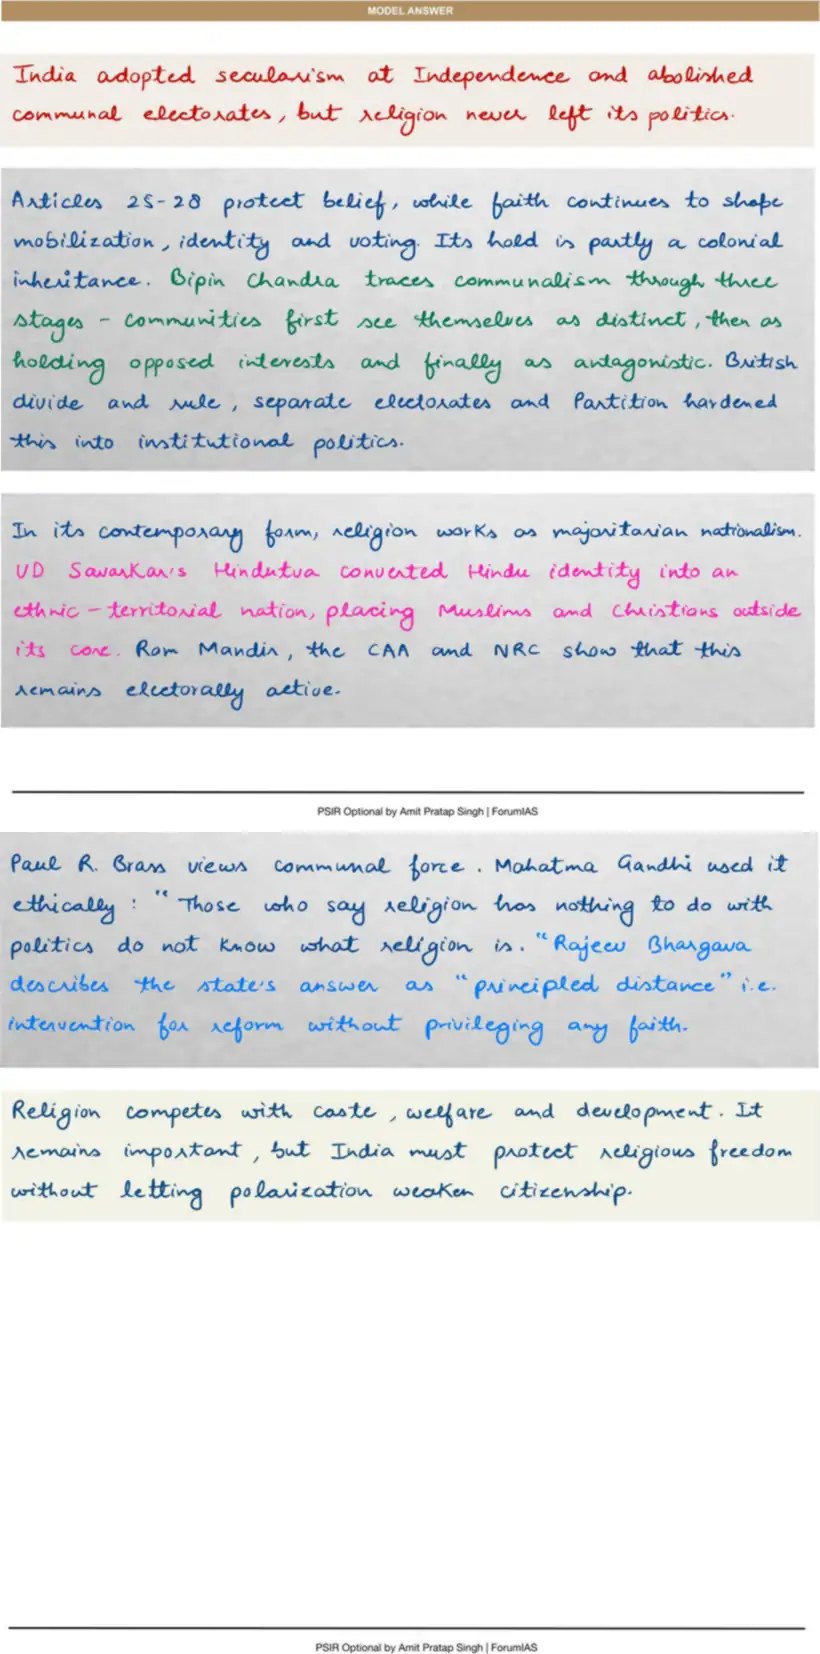 MODEL ANSWER
India adopted secularism at Independence and abolished
communal electorates, but religion never left its politics.
Articles 25-28 protect belief, while faith continues to shape
mobilization, identity and voting. Its hold is partly a colonial
inheritance. Bipin Chandra traces communalism through three
stages - communities first see themselves as distinct, then as
holding opposed interests and finally as antagonistic. British
divide and rule, separate electorates and Partition hardened
this into institutional politics.
In its contemporary form, religion works as majoritarian nationalism.
VD Savarkar's Hindutva converted Hindu identity into an
ethnic-territorial nation, placing Muslims and Christians outside
its core. Ram Mandir, the CAA and NRC show that this
remains electorally active.
PSIR Optional by Amit Pratap Singh | ForumIAS
Paul R. Brass views communal force. Mahatma Gandhi used it
ethically: "Those who say religion has nothing to do with
politics do not know what religion is. "Rajeev Bhargava
describes the state's answer as "principled distance" i.e.
intervention for reform without privileging any faith.
Religion competes with caste, welfare and development. It
remains important, but India must protect religious freedom
without letting polarization weaken citizenship.
PSIR Optional by Amit Pratap Singh | ForumIAS